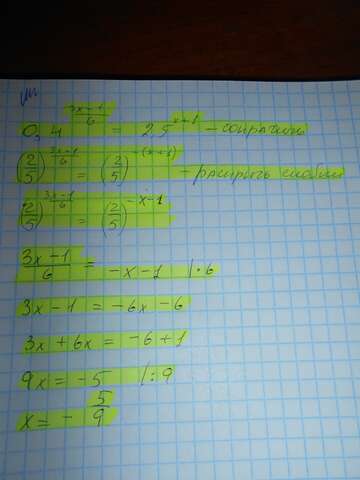 0,4^(3x-1)/6 = 2,5^x+1 - сократили
(2/5)^(3x-1)/6 = (2/5)^-(x+1) - раскрыть скобки
(2/5)^(3x-1)/6 = (2/5)^-x-1
(3x-1)/6 = -x-1 |·6
3x-1 = -6x-6
3x+6x = -6+1
9x = -5 |:9
x = -5/9